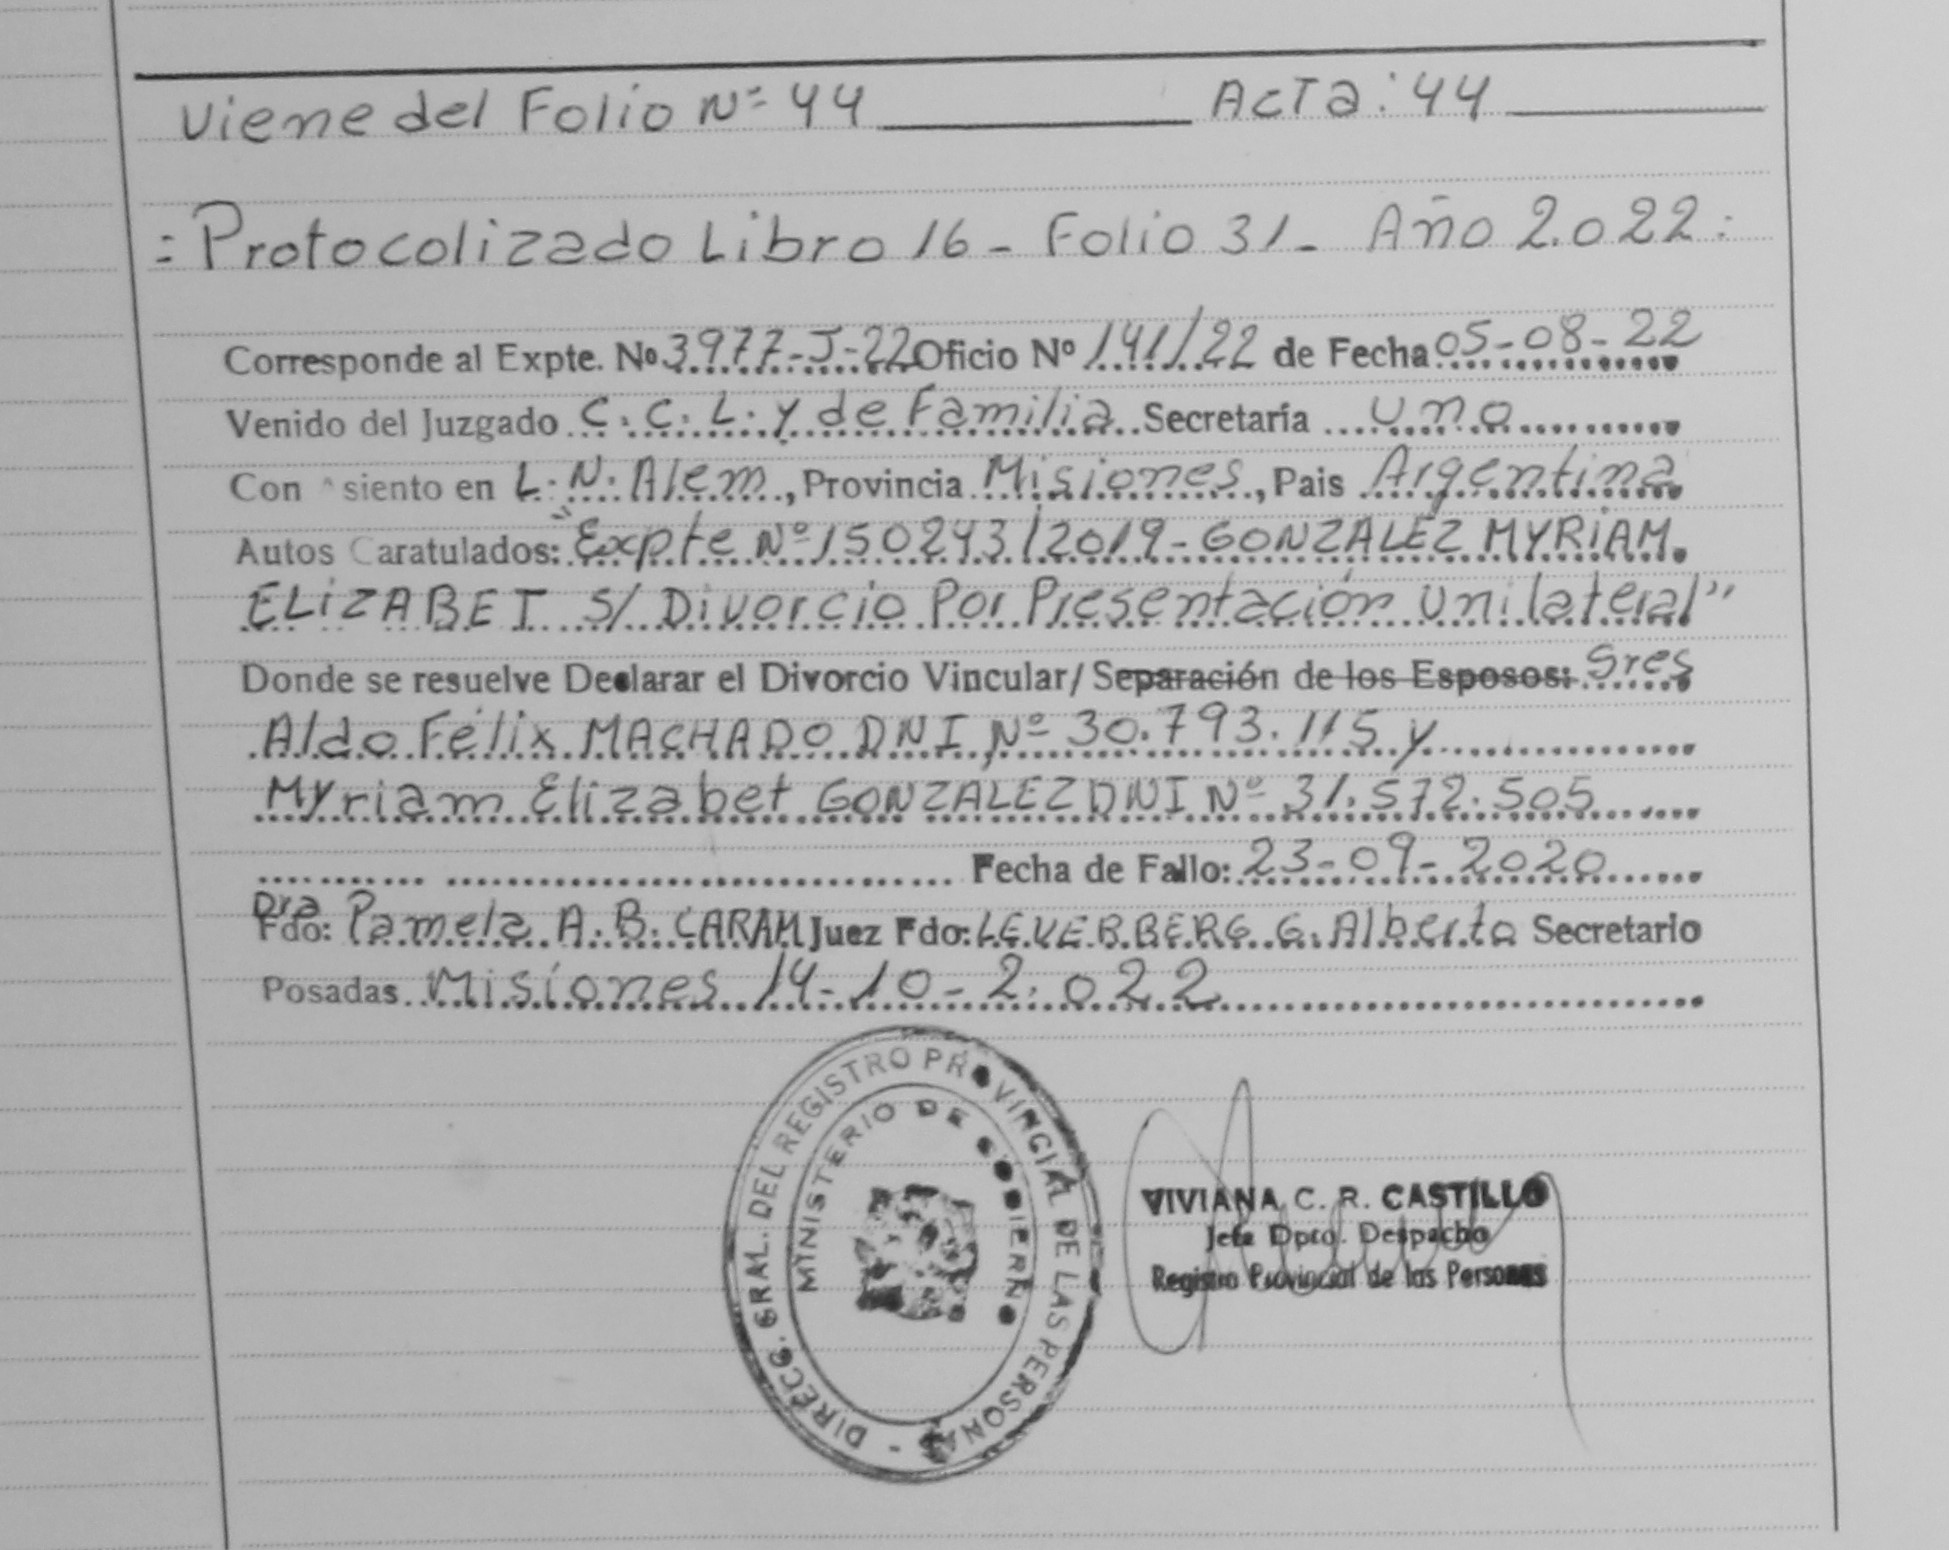 Viene del Folio Nº 44 Acta: 44
= Protocolizado Libro 16 - Folio 31 - Año 2.022 :
Corresponde al Expte. Nº 3977-J-22 Oficio Nº 141/22 de Fecha 05-08-22
Venido del Juzgado C.C.L. y de Familia Secretaría uno
Con Asiento en L.N. Alem, Provincia Misiones, Pais Argentina
Autos Caratulados: "Expte Nº 150243/2019 - GONZALEZ MYRIAM
ELIZABET S/ Divorcio Por Presentación Unilateral"
Donde se resuelve Declarar el Divorcio Vincular/ Separación de los Esposos: Sres
Aldo Félix MACHADO DNI Nº 30.793.115 y
Myriam Elizabet GONZALEZ DNI Nº 31.572.505
Fecha de Fallo: 23-09-2020
Dra
Fdo: Pamela A. B. CARAM Juez Fdo: LEVERBERG G. Alberto Secretario
Posadas Misiones 14-10-2.022
DIRECC. GRAL. DEL REGISTRO PROVINCIAL DE LAS PERSONAS -
MINISTERIO DE GOBIERNO
VIVIANA C. R. CASTILLO
Jefa Dpto. Despacho
Registro Provincial de las Personas